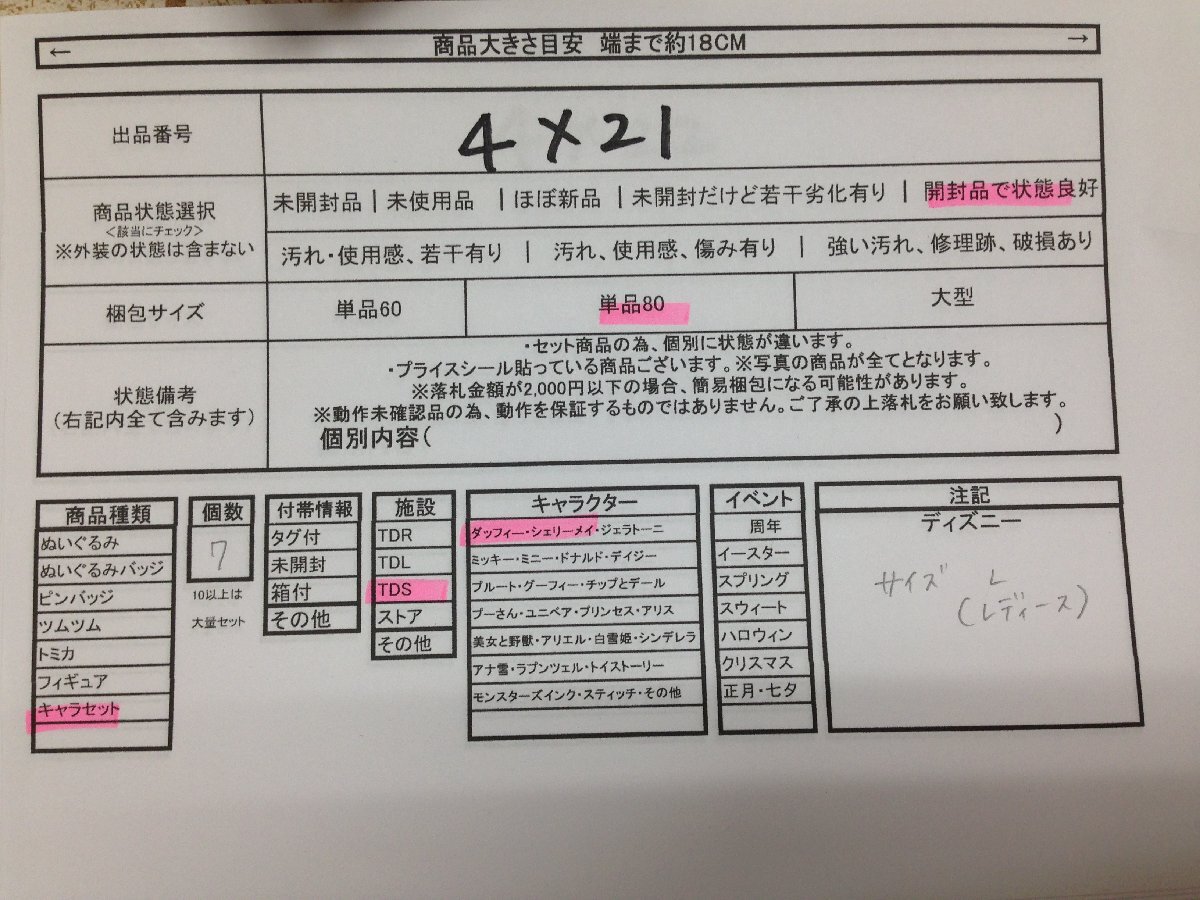 ← 商品大きさ目安 端まで約18CM →
出品番号 4×21
商品状態選択
<該当にチェック>
※外装の状態は含まない
未開封品 | 未使用品 | ほぼ新品 | 未開封だけど若干劣化有り | 開封品で状態良好
汚れ・使用感、若干有り | 汚れ、使用感、傷み有り | 強い汚れ、修理跡、破損あり
梱包サイズ 単品60 単品80 大型
状態備考
(右記内全て含みます)
・セット商品の為、個別に状態が違います。
・プライスシール貼っている商品ございます。※写真の商品が全てとなります。
※落札金額が2,000円以下の場合、簡易梱包になる可能性があります。
※動作未確認品の為、動作を保証するものではありません。ご了承の上落札をお願い致します。
個別内容( )
商品種類
ぬいぐるみ
ぬいぐるみバッジ
ピンバッジ
ツムツム
トミカ
フィギュア
キャラセット
個数
7
10以上は
大量セット
付帯情報
タグ付
未開封
箱付
その他
施設
TDR
TDL
TDS
ストア
その他
キャラクター
ダッフィー・シェリーメイ・ジェラトーニ
ミッキー・ミニー・ドナルド・デイジー
プルート・グーフィー・チップとデール
プーさん・ユニベア・プリンセス・アリス
美女と野獣・アリエル・白雪姫・シンデレラ
アナ雪・ラプンツェル・トイストーリー
モンスターズインク・スティッチ・その他
イベント
周年
イースター
スプリング
スウィート
ハロウィン
クリスマス
正月・七夕
注記
ディズニー
サイズ L
(レディース)